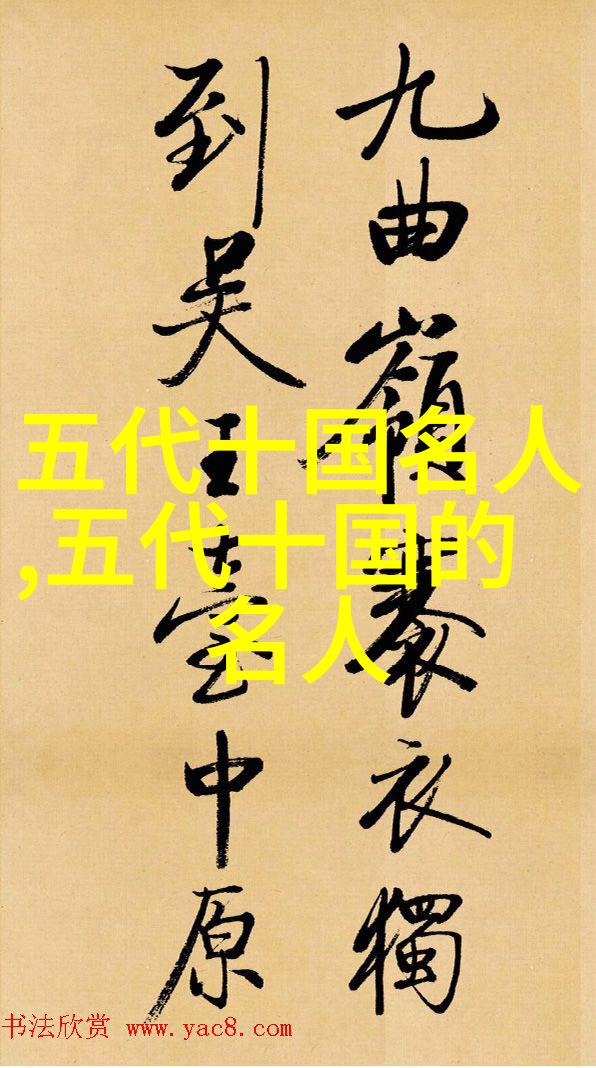 九曲嶺衣獨
到吳王臺中原
五代十国名人
,五代十国的
名人
书法欣赏 www.yac8.com